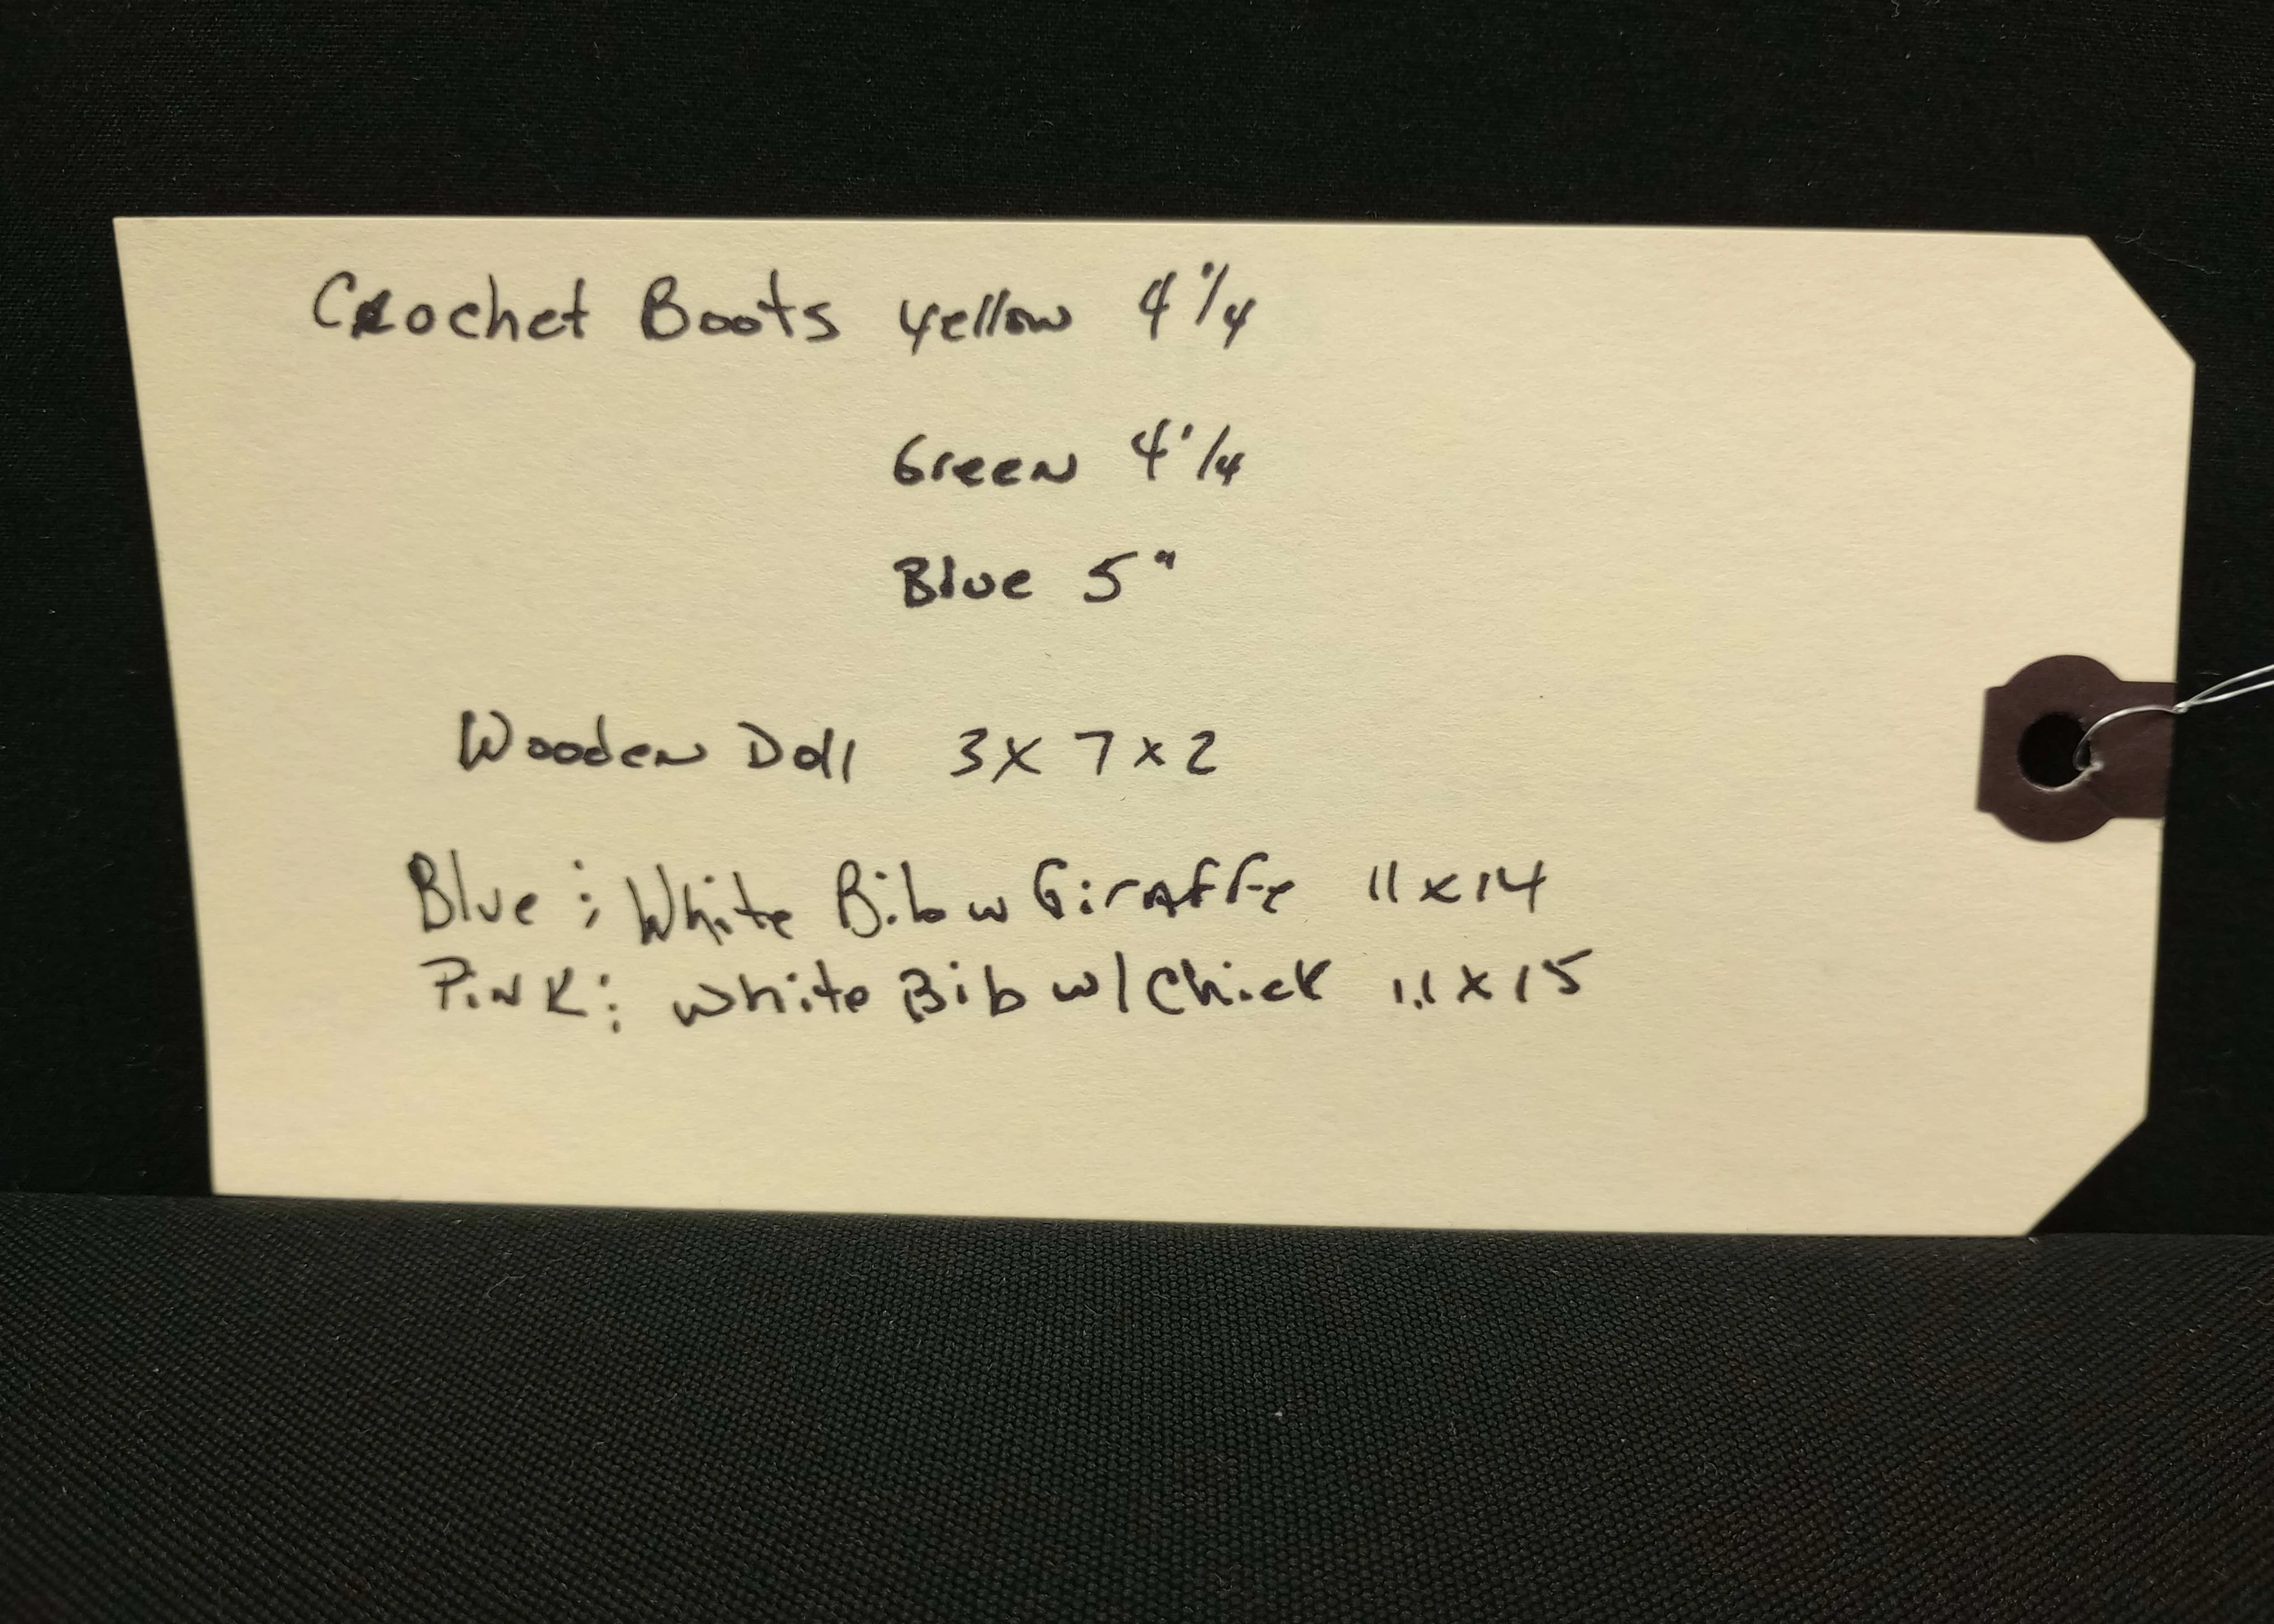 Crochet Boots yellow 4 1/4
Green 4 1/4
Blue 5"
Wooden Doll 3 x 7 x 2
Blue ; White Bib w Giraffe 11 x 14
Pink ; white Bib w/ Chick 11 x 15